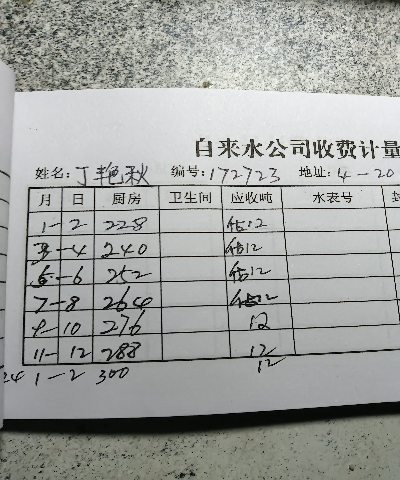 自来水公司收费计量
姓名:丁艳秋 编号:172723 地址:4-20
月 日 厨房 卫生间 应收吨 水表号
1-2 228 估12
3-4 240 估12
5-6 252 估12
7-8 264 估12
9-10 276 12
11-12 288 12
24 1-2 300 12